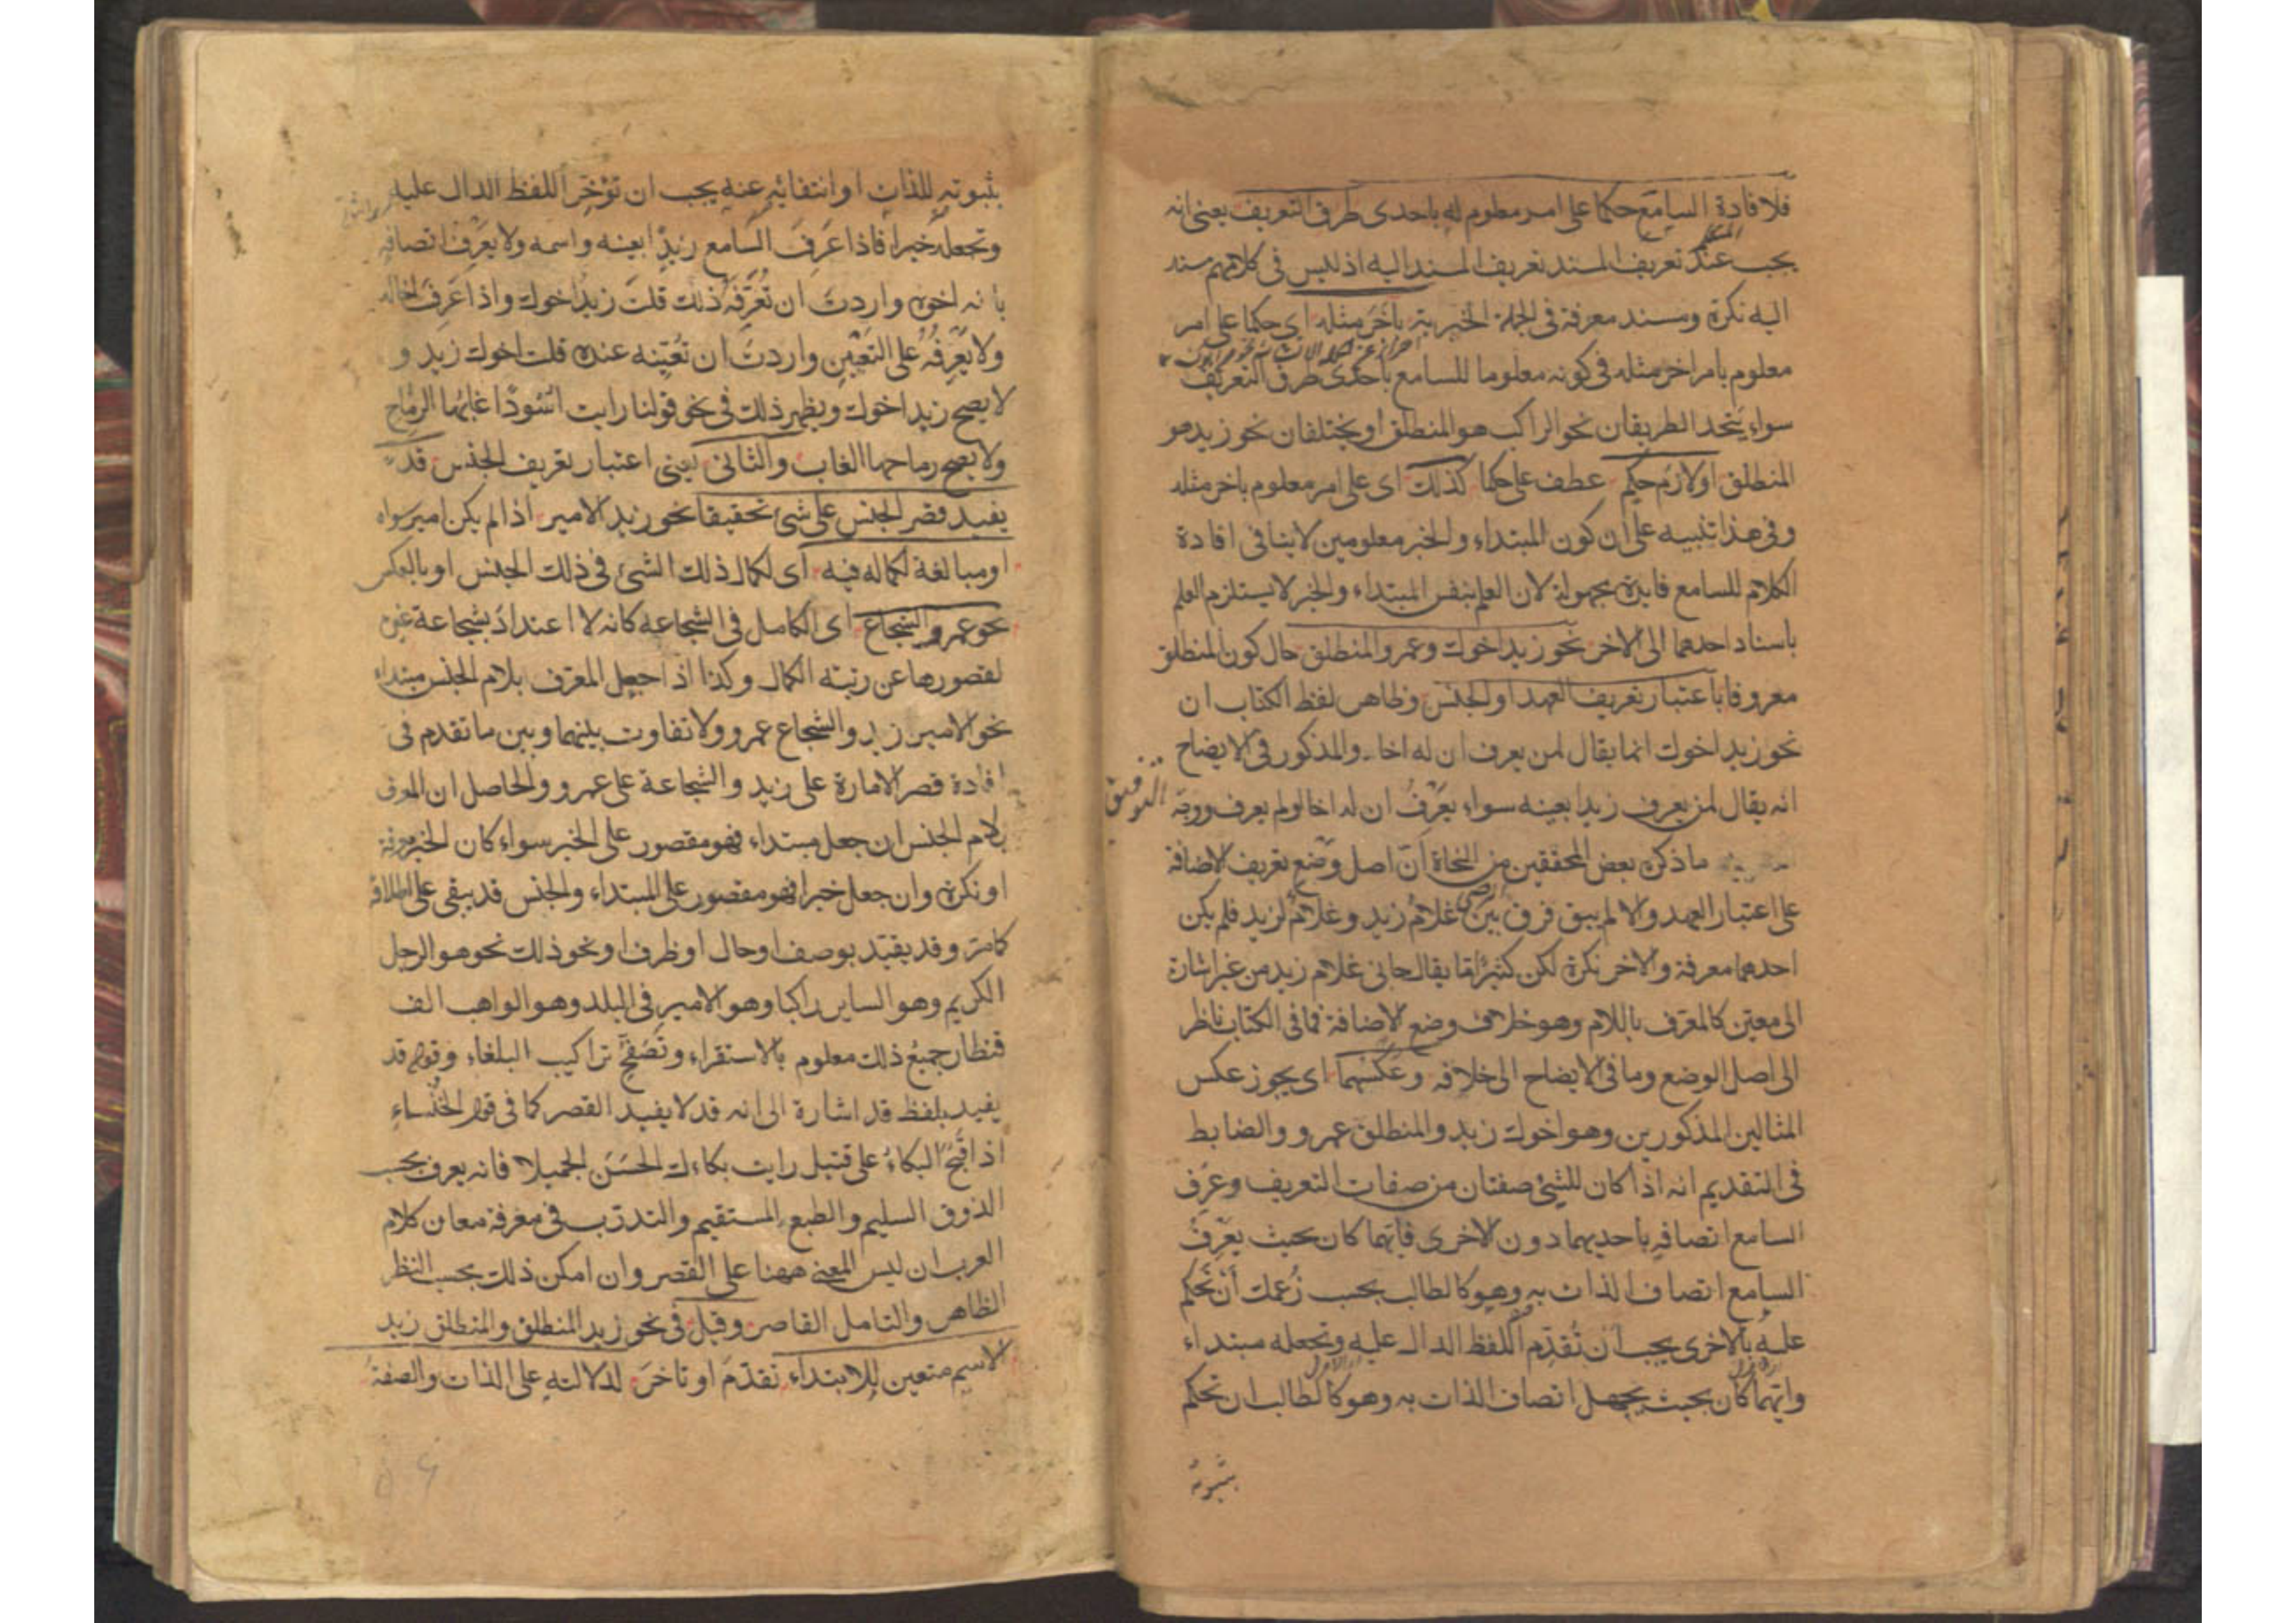 فلافادة السامع حكما على امر معلوم له باحدى طرق التعريف يعنى انه
يجب عند تعريف المسند تعريف المسند اليه اذ ليس فى كلامهم مسند
اليه نكرة ومسند معرفة فى الجملة الخبرية باخر مثله اى حكما على امر
معلوم بامر اخر مثله فى كونه معلوما للسامع باحدى طرق التعريف
سواء يتحد الطريقان نحو الراكب هو المنطلق او يختلفان نحو زيد هو
المنطلق او لازم حكم عطف على حكما كذلك اى على امر معلوم باخر مثله
وفى هذا تنبيه على ان كون المبتداء والخبر معلومين لا ينافى افادة
الكلام للسامع فايدة مجهولة لان العلم بنفس المبتداء والخبر لا يستلزم العلم
باسناد احدهما الى الاخر نحو زيد اخوك وعمرو المنطلق حال كون المنطلق
معروفا باعتبار تعريف العهد او الجنس وظاهر لفظ الكتاب ان
نحو زيد اخوك انما يقال لمن يعرف ان له اخا والمذكور فى الايضاح
انه يقال لمن يعرف زيدا بعينه سواء يعرف ان له اخا او لم يعرف ووجه
التوفيق
ما ذكره بعض المحققين من النحاة ان اصل وضع تعريف الاضافة
على اعتبار العهد والا لم يبق فرق بين غلام زيد وغلام لزيد فلم يكن
احدهما معرفة والاخر نكرة لكن كثيرا ما يقال جانى غلام زيد من غير اشارة
الى معين كالمعرف باللام وهو خلاف وضع الاضافة فما فى الكتاب ناظر
الى اصل الوضع وما فى الايضاح الى خلافه وعكسهما اى يجوز عكس
المثالين المذكورين وهو اخوك زيد والمنطلق عمرو والضابط
فى التقديم انه اذا كان للشئ صفتان من صفات التعريف وعرف
السامع اتصافه باحديهما دون الاخرى فايهما كان بحيث يعرف
السامع اتصاف الذات به وهو كالطالب بحسب زعمك ان تحكم
عليه بالاخرى يجب ان تقدم اللفظ الدال عليه وتجعله مبتداء
وايهما كان بحيث يجهل اتصاف الذات به وهو كالطالب ان تحكم
بثبوته
بثبوته للذات او انتفائه عنه يجب ان تؤخر اللفظ الدال عليه
وتجعله خبرا فاذا عرف السامع زيدا بعينه واسمه ولا يعرف اتصافه
بانه اخوه واردت ان تعرفه ذلك قلت زيد اخوك واذا عرف اخاله
ولا يعرفه على التعيين واردت ان تعينه عنده قلت اخوك زيد و
لا يصح زيد اخوك ويظهر ذلك فى نحو قولنا رايت اسودا غابها الرماح
ولا يصح رماحها الغاب والثانى يعنى اعتبار تعريف الجنس قد
يفيد قصر الجنس على شئ تحقيقا نحو زيد الامير اذا لم يكن امير سواه
او مبالغة لكماله فيه اى لكمال ذلك الشئ فى ذلك الجنس او بالعكس
نحو عمرو الشجاع اى الكامل فى الشجاعة كانه لا اعتداد بشجاعة غيره
لقصورها عن رتبة الكمال وكذا اذا جعل المعرف بلام الجنس مبتداء
نحو الامير زيد والشجاع عمرو ولا تفاوت بينهما وبين ما تقدم فى
افادة قصر الامارة على زيد والشجاعة على عمرو والحاصل ان المعرف
بلام الجنس ان جعل مبتداء فهو مقصور على الخبر سواء كان الخبر معرفة
او نكرة وان جعل خبرا فهو مقصور على المبتداء والجنس قد يبقى على اطلاقه
كما مر وقد يقيد بوصف او حال او ظرف او نحو ذلك نحو هو الرجل
الكريم وهو الساير راكبا وهو الامير فى البلد وهو الواهب الف
قنطار جميع ذلك معلوم بالاستقراء وتصفح تراكيب البلغاء وقوله قد
يفيد بلفظ قد اشارة الى انه قد لا يفيد القصر كما فى قول الخنساء
اذا قبح البكاء على قتيل رايت بكاءك الحسن الجميلا فانه يعرف بحسب
الذوق السليم والطبع المستقيم والتدرب فى معرفة معان كلام
العرب ان ليس المعنى ههنا على القصر وان امكن ذلك بحسب النظر
الظاهر والتامل القاصر وقيل فى نحو زيد المنطلق والمنطلق زيد
الاسم متعين للابتداء تقدم او تاخر لدلالته على الذات والصفة